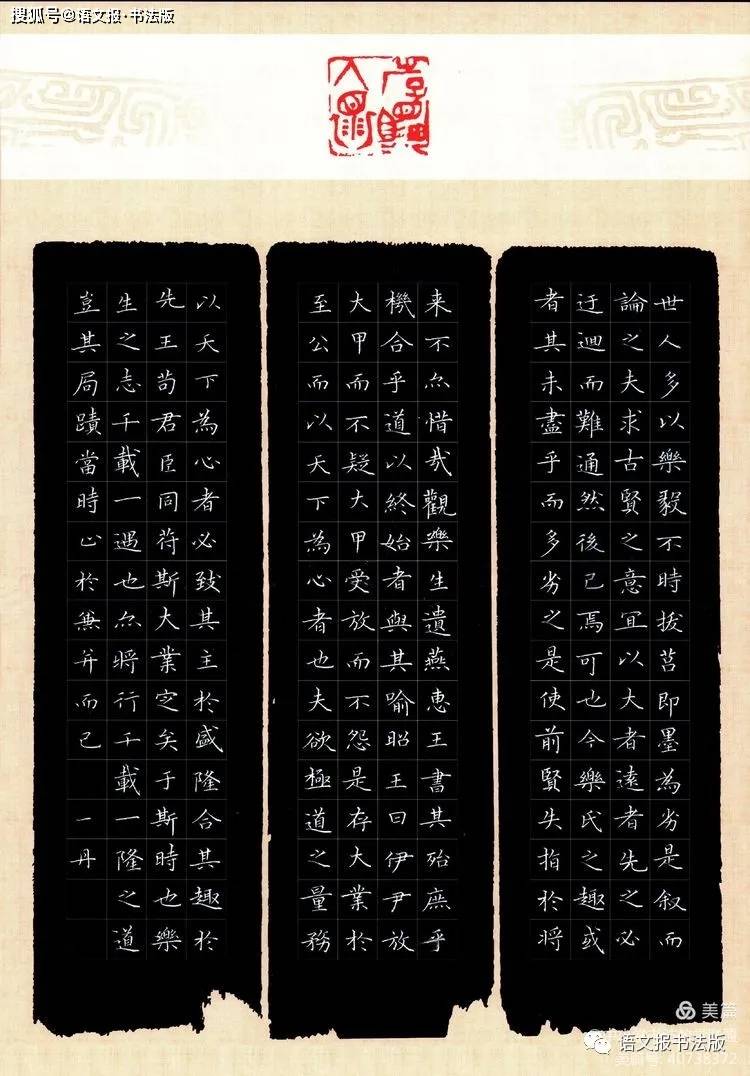 搜狐号@语文报·书法版
世人多以樂毅不時拔莒即墨為劣是叙而
論之夫求古賢之意宜以大者遠者先之必
迂迴而難通然後已焉可也今樂氏之趣或
者其未盡乎而多劣之是使前賢失指於將
来不尒惜哉觀樂生遺燕惠王書其殆庶乎
機合乎道以終始者與其喻昭王曰伊尹放
大甲而不疑大甲受放而不怨是存大業於
至公而以天下為心者也夫欲極道之量務
以天下為心者必致其主於盛隆合其趣於
先王苟君臣同符斯大業定矣于斯時也樂
生之志千載一遇也尒將行千載一隆之道
豈其局蹟當時止於兼并而已 一丹
美篇
语文报书法版